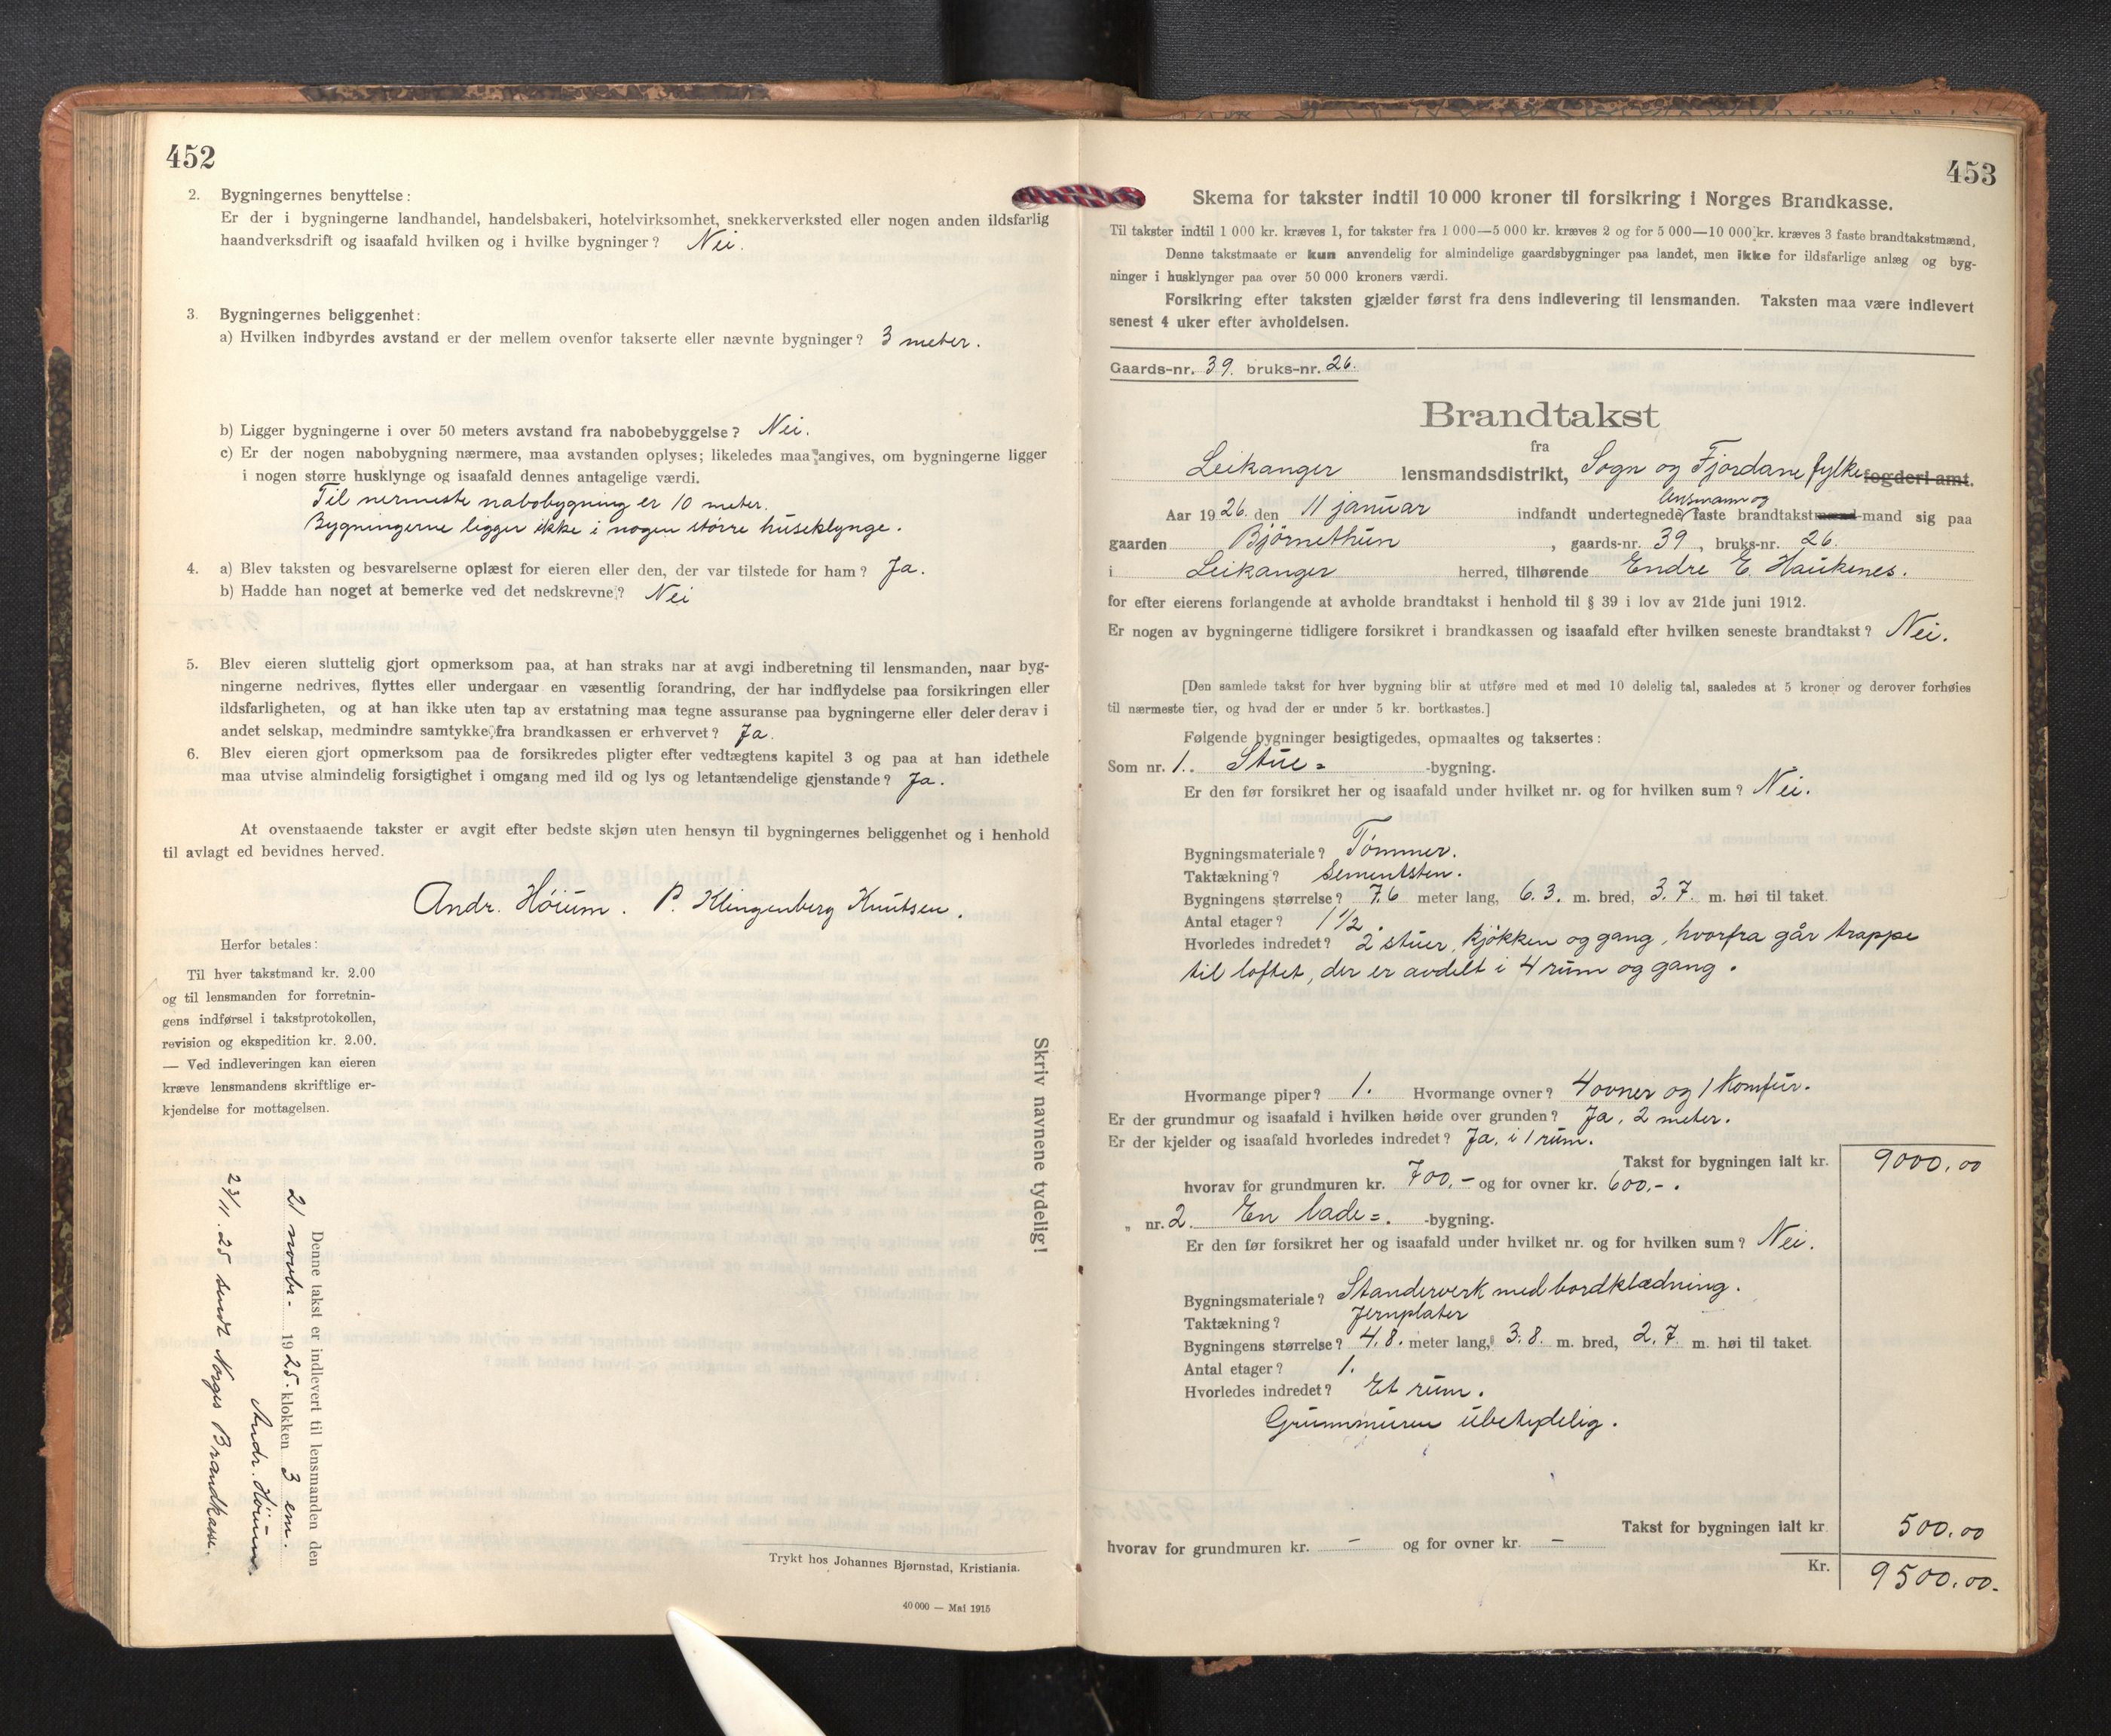 452
2. Bygningernes benyttelse:
Er der i bygningerne landhandel, handelsbakeri, hotelvirksomhet, snekkerverksted eller nogen anden ildsfarlig
haandverksdrift og isaafald hvilken og i hvilke bygninger? Nei.
3. Bygningernes beliggenhet:
a) Hvilken indbyrdes avstand er der mellem ovenfor takserte eller nævnte bygninger? 3 meter.
b) Ligger bygningerne i over 50 meters avstand fra nabobebyggelse? Nei.
c) Er der nogen nabobygning nærmere, maa avstanden oplyses; likeledes maa angives, om bygningerne ligger
i nogen større husklynge og isaafald dennes antagelige værdi.
Til nermeste nabobygning er 10 meter.
Bygningerne ligger ikke i nogen större huseklynge.
4. a) Blev taksten og besvarelserne oplæst for eieren eller den, der var tilstede for ham? Ja.
b) Hadde han noget at bemerke ved det nedskrevne? Nei
5. Blev eieren sluttelig gjort opmerksom paa, at han straks har at avgi indberetning til lensmanden, naar byg-
ningerne nedrives, flyttes eller undergaar en væsentlig forandring, der har indflydelse paa forsikringen eller
ildsfarligheten, og at han ikke uten tap av erstatning maa tegne assuranse paa bygningerne eller deler derav i
andet selskap, medmindre samtykke fra brandkassen er erhvervet? Ja.
6. Blev eieren gjort opmerksom paa de forsikredes pligter efter vedtægtens kapitel 3 og paa at han idethele
maa utvise almindelig forsigtighet i omgang med ild og lys og letantændelige gjenstande? Ja.
At ovenstaaende takster er avgit efter bedste skjøn uten hensyn til bygningernes beliggenhet og i henhold
til avlagt ed bevidnes herved.
Andr. Höium. P. Klingenberg Knutsen.
Herfor betales:
Til hver takstmand kr. 2.00
og til lensmanden for forretnin-
gens indførsel i takstprotokollen,
revision og ekspedition kr. 2.00.
— Ved indleveringen kan eieren
kræve lensmandens skriftlige er-
kjendelse for mottagelsen.
Skriv navnene tydelig!
Denne takst er indlevert til lensmanden den
21 novbr. 1925. klokken 3 em.
Andr. Höium.
23/11. 25 sendt Norges Brandkasse.
Trykt hos Johannes Bjørnstad, Kristiania.
40 000 — Mai 1915
453
Skema for takster indtil 10 000 kroner til forsikring i Norges Brandkasse.
Til takster indtil 1 000 kr. kræves 1, for takster fra 1 000—5 000 kr. kræves 2 og for 5 000—10 000 kr. kræves 3 faste brandtakstmænd,
Denne takstmaate er kun anvendelig for almindelige gaardsbygninger paa landet, men ikke for ildsfarlige anlæg og byg-
ninger i husklynger paa over 50 000 kroners værdi.
Forsikring efter taksten gjælder først fra dens indlevering til lensmanden. Taksten maa være indlevert
senest 4 uker efter avholdelsen.
Gaards-nr. 39. bruks-nr. 26.
Brandtakst
fra
Leikanger lensmandsdistrikt, Sogn og Fjordane fylke fogderi amt.
lensmann og
Aar 1926. den 11 januar indfandt undertegnede faste brandtakstmænd-mand sig paa
gaarden Björnethun, gaards-nr. 39, bruks-nr. 26.
i Leikanger herred, tilhørende Endre E. Haukenes.
for efter eierens forlangende at avholde brandtakst i henhold til § 39 i lov av 21de juni 1912.
Er nogen av bygningerne tidligere forsikret i brandkassen og isaafald efter hvilken seneste brandtakst? Nei.
[Den samlede takst for hver bygning blir at utføre med et med 10 delelig tal, saaledes at 5 kroner og derover forhøies
til nærmeste tier, og hvad der er under 5 kr. bortkastes.]
Følgende bygninger besigtigedes, opmaaltes og taksertes:
Som nr. 1. Stue= -bygning.
Er den før forsikret her og isaafald under hvilket nr. og for hvilken sum? Nei.
Bygningsmateriale? Tömmer.
Taktækning? Sementsten.
Bygningens størrelse? 7.6 meter lang, 6.3. m. bred, 3.7. m. høi til taket.
Antal etager? 1 1/2.
Hvorledes indredet? 2 stuer, kjökken og gang, hvorfra går trappe
til loftet, der er avdelt i 4 rum og gang.
Hvormange piper? 1. Hvormange ovner? 4 ovner og 1 Komfur.
Er der grundmur og isaafald i hvilken høide over grunden? Ja, 2 meter.
Er der kjelder og isaafald hvorledes indredet? Ja, i 1 rum.
Takst for bygningen ialt kr. 9000.00
hvorav for grundmuren kr. 700,- og for ovner kr. 600,-.
„ nr. 2. En lade=. -bygning.
Er den før forsikret her og isaafald under hvilket nr. og for hvilken sum? Nei.
Bygningsmateriale? Standerverk med bordklædning.
Taktækning? Jernplater
Bygningens størrelse? 4.8. meter lang, 3.8. m. bred, 2.7. m. høi til taket.
Antal etager? 1.
Hvorledes indredet? Et rum.
Grunnmuren ubetydelig.
Takst for bygningen ialt kr. 500.00
hvorav for grundmuren kr. - og for ovner kr. -
Kr. 9500.00.